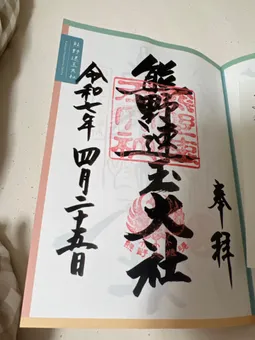 奉拝
熊野速玉大社
令和七年 四月二十五日
熊野速玉大社